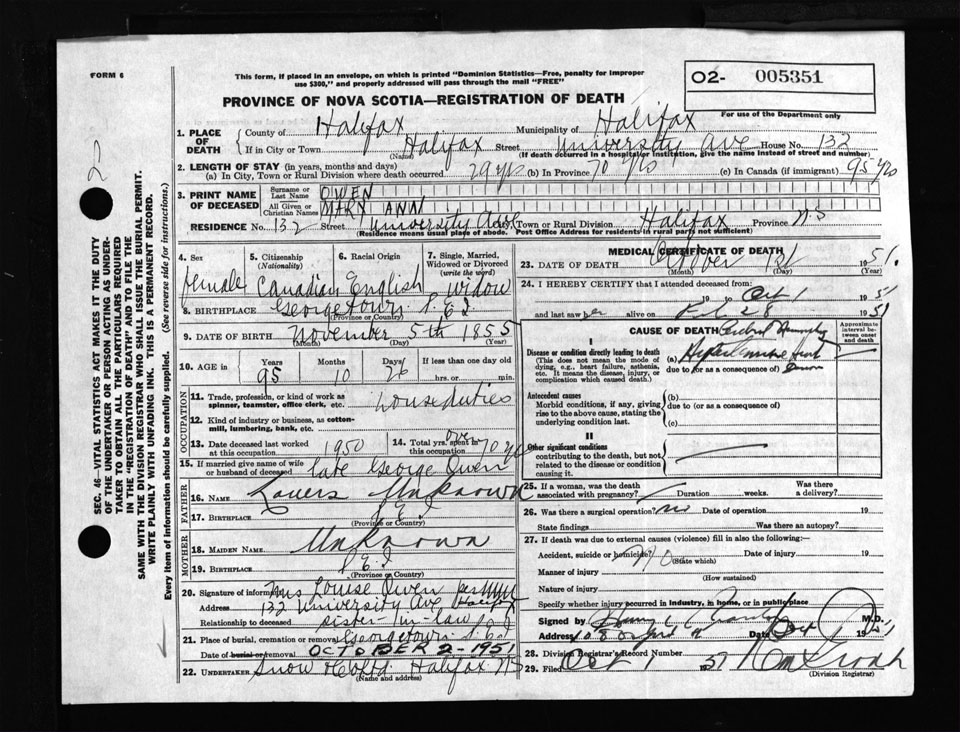 FORM 6
This form, if placed in an envelope, on which is printed "Dominion Statistics—Free, penalty for improper
use $300," and properly addressed will pass through the mail "FREE"
O2- 005351
For use of the Department only
PROVINCE OF NOVA SCOTIA—REGISTRATION OF DEATH
1. PLACE OF DEATH County of Halifax Municipality of Halifax
If in City or Town Halifax Street University Ave House No. 132
(Name) (If death occurred in a hospital or institution, give the name instead of street and number)
2. LENGTH OF STAY (in years, months and days)
(a) In City, Town or Rural Division where death occurred 29 yrs (b) In Province 70 yrs (c) In Canada (if immigrant) 95 yrs
3. PRINT NAME OF DECEASED Surname or Last Name OWEN
All Given or Christian Names MARY ANN
RESIDENCE No. 132 Street University Ave City, Town or Rural Division Halifax Province N.S
(Residence means usual place of abode. Post Office Address for residents in rural parts not sufficient)
4. Sex female
5. Citizenship (Nationality) Canadian
6. Racial Origin English
7. Single, Married, Widowed or Divorced (write the word) widow
8. BIRTHPLACE Georgetown P.E.I
(Province or Country)
9. DATE OF BIRTH November 5th 1855
(Month) (Day) (Year)
10. AGE Years 95 Months 10 Days 26 If less than one day old hrs. or min.
OCCUPATION
11. Trade, profession, or kind of work as spinner, teamster, office clerk, etc. house duties
12. Kind of industry or business, as cotton-mill, lumbering, bank, etc.
13. Date deceased last worked at this occupation 1950
14. Total yrs. spent in this occupation over 70 yrs
15. If married give name of wife or husband of deceased late George Owen
FATHER
16. NAME Unknown
17. BIRTHPLACE P E I
(Province or Country)
MOTHER
18. MAIDEN NAME Unknown
19. BIRTHPLACE P.E.I
(Province or Country)
20. Signature of informant Mrs Louise Owen per
Address 132 University Ave Halifax
Relationship to deceased sister-in-law
21. Place of burial, cremation or removal Georgetown P.E.I
Date of burial or removal OCTOBER 2-1951
22. UNDERTAKER Snow & Co Ltd. Halifax NS
(Name and address)
MEDICAL CERTIFICATE OF DEATH
23. DATE OF DEATH October 1st 1951.
(Month) (Day) (Year)
24. I HEREBY CERTIFY that I attended deceased from:
19 to Oct 1 1951
and last saw her alive on 1951
CAUSE OF DEATH
Approximate interval between onset and death
I
Disease or condition directly leading to death
(This does not mean the mode of dying, e.g., heart failure, asthenia, etc. It means the disease, injury, or complication which caused death.)
(a)
due to (or as a consequence of)
Antecedent causes
Morbid conditions, if any, giving rise to the above cause, stating the underlying condition last.
(b)
due to (or as a consequence of)
(c)
II
Other significant conditions
contributing to the death, but not related to the disease or condition causing it.
25. If a woman, was the death associated with pregnancy? Duration weeks. Was there a delivery?
26. Was there a surgical operation? no Date of operation 19
State findings Was there an autopsy?
27. If death was due to external causes (violence) fill in also the following:—
Accident, suicide or homicide? No Date of injury 19
(State which)
Manner of injury
(How sustained)
Nature of injury
Specify whether injury occurred in industry, in home, or in public place
Signed by M.D.
Address Date Oct 1951
28. Division Registrar's Record Number
29. Filed Oct 1 1951
(Division Registrar)
SEC. 46—VITAL STATISTICS ACT MAKES IT THE DUTY
OF THE UNDERTAKER OR PERSON ACTING AS UNDER-
TAKER TO OBTAIN ALL THE PARTICULARS REQUIRED
IN THE "REGISTRATION OF DEATH" AND TO FILE THE
SAME WITH THE DIVISION REGISTRAR WHO SHALL ISSUE THE BURIAL PERMIT.
WRITE PLAINLY WITH UNFADING INK. THIS IS A PERMANENT RECORD.
Every item of information should be carefully supplied. (See reverse side for instructions.)